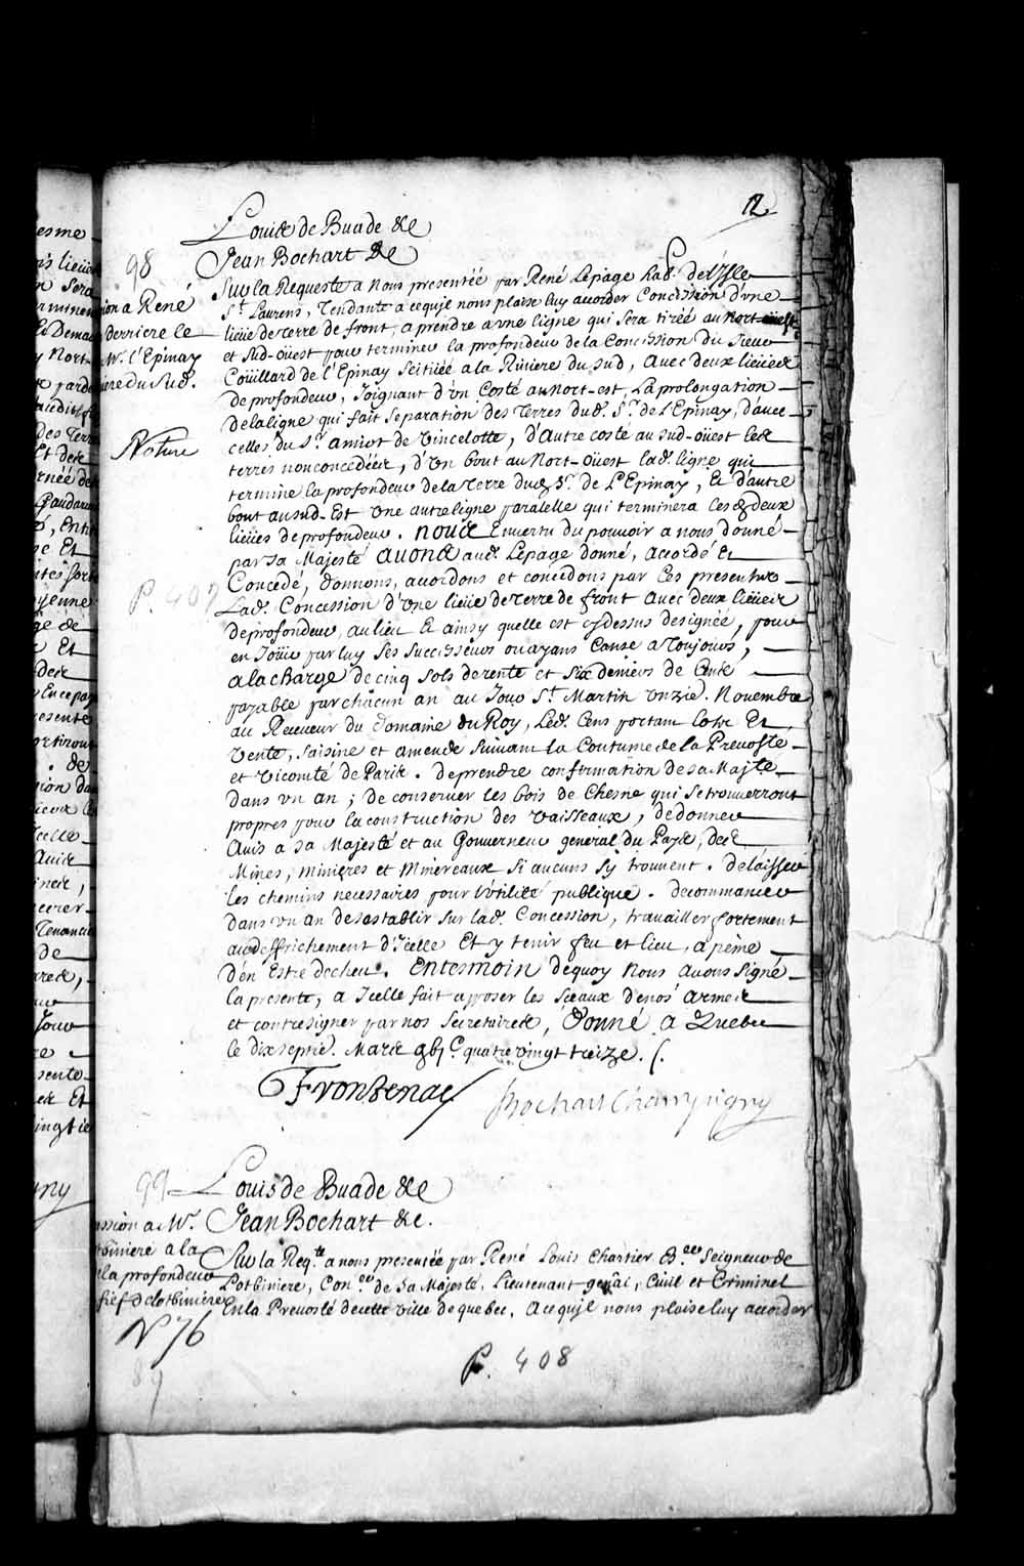 12
Louis de Buade &c
98 Jean Bochart &c
Sur la Requeste a Nous presentéé par René Lepage hab. de L'Isle
St. Laurens, Tendante a cequ'il nous plaise luy accorder Concession d'une
lieüe de terre de front, a prendre a une ligne qui sera tirée au Nort-oüest
et Sud-oüest pour terminer la profondeur de la Concession du Sieur
Coüillard de l'Epinay Scitüéé a la Riviere du Sud, avec deux lieües
de profondeur, Joignant d'un Costé au Nort-est, la prolongation
delaligne qui fait separation des Terres dud. Sr. de l'Epinay, d'avec
celles du Sr. amiot de Vincelotte, d'Autre costé au Sud-oüest les
terres nonconcedéés, d'Un bout au Nort-Oüest lad. ligne qui
termine la profondeur dela Terre dud. Sr. de L'Epinay, Et d'autre
bout au Sud-Est Une autre ligne paralelle qui terminera Ces deux
lieües de profondeur. Nous Envertu du pouvoir a nous donné
par Sa Majesté avons aud. Lepage donné, accordé Et
Concedé, donnons, accordons et concedons par Ces presentes
Lad. Concession d'Une lieüe de Terre de front avec deux lieües
de profondeur, au lieu Et ainsy quelle est cydessus designée, pour
en Joüir par luy Ses Successeurs ou ayans Cause a Toujours,
a la charge de cinq Sols de rente et Six deniers de Cens
payable par chacun an au Jour St. Martin Unzie. Novembre
au Receveur du Domaine du Roy, Led. Cens portant lots Et
Vente, Saisine et amende Suivant la Coutume de la Prevosté
et Vicomté de Paris. De prendre confirmation de sa Majté
Dans un an; de conserver les bois de Chesne qui Setrouverront
propres pour la construction des Vaisseaux, de donner
Avis a Sa Majesté et au Gouverneur general du Pays, des
Mines, minieres et Mineraux Si aucuns s'y trouvent. De laisser
les chemins necessaires pour l'Utilité publique. De commancer
dans un an de sestablir sur lad. Concession, travailler fortement
au deffrichement d'Icelle Et y tenir feu et lieu, a peine
D'en Estre decheu. En tesmoin de quoy Nous avons Signé
la presente, a Icelle fait apposer les Sceaux de nos armes
et contresigner par nos Secretaires, Donné a Quebec
le dix septie. Mars gbjc quatre vingt treize.
Frontenac Bochart Champigny
ion a René
derriere le
Mr. l'Epinay
iere du Sud.
Nature
P. 407
99 Louis de Buade &c
Jean Bochart &c.
Sur la Reqte. a nous presentée par René Louis Chartier Seigneur de
Lotbiniere, Coner. de Sa Majesté, Lieutenant genâl, Civil et Criminel
En la Prevosté de cette ville de quebec. A cequ'il nous plaise luy accorder
ession a Mr.
tbiniere a la
la profondeur
fief de lotbiniere
No 76
P. 408